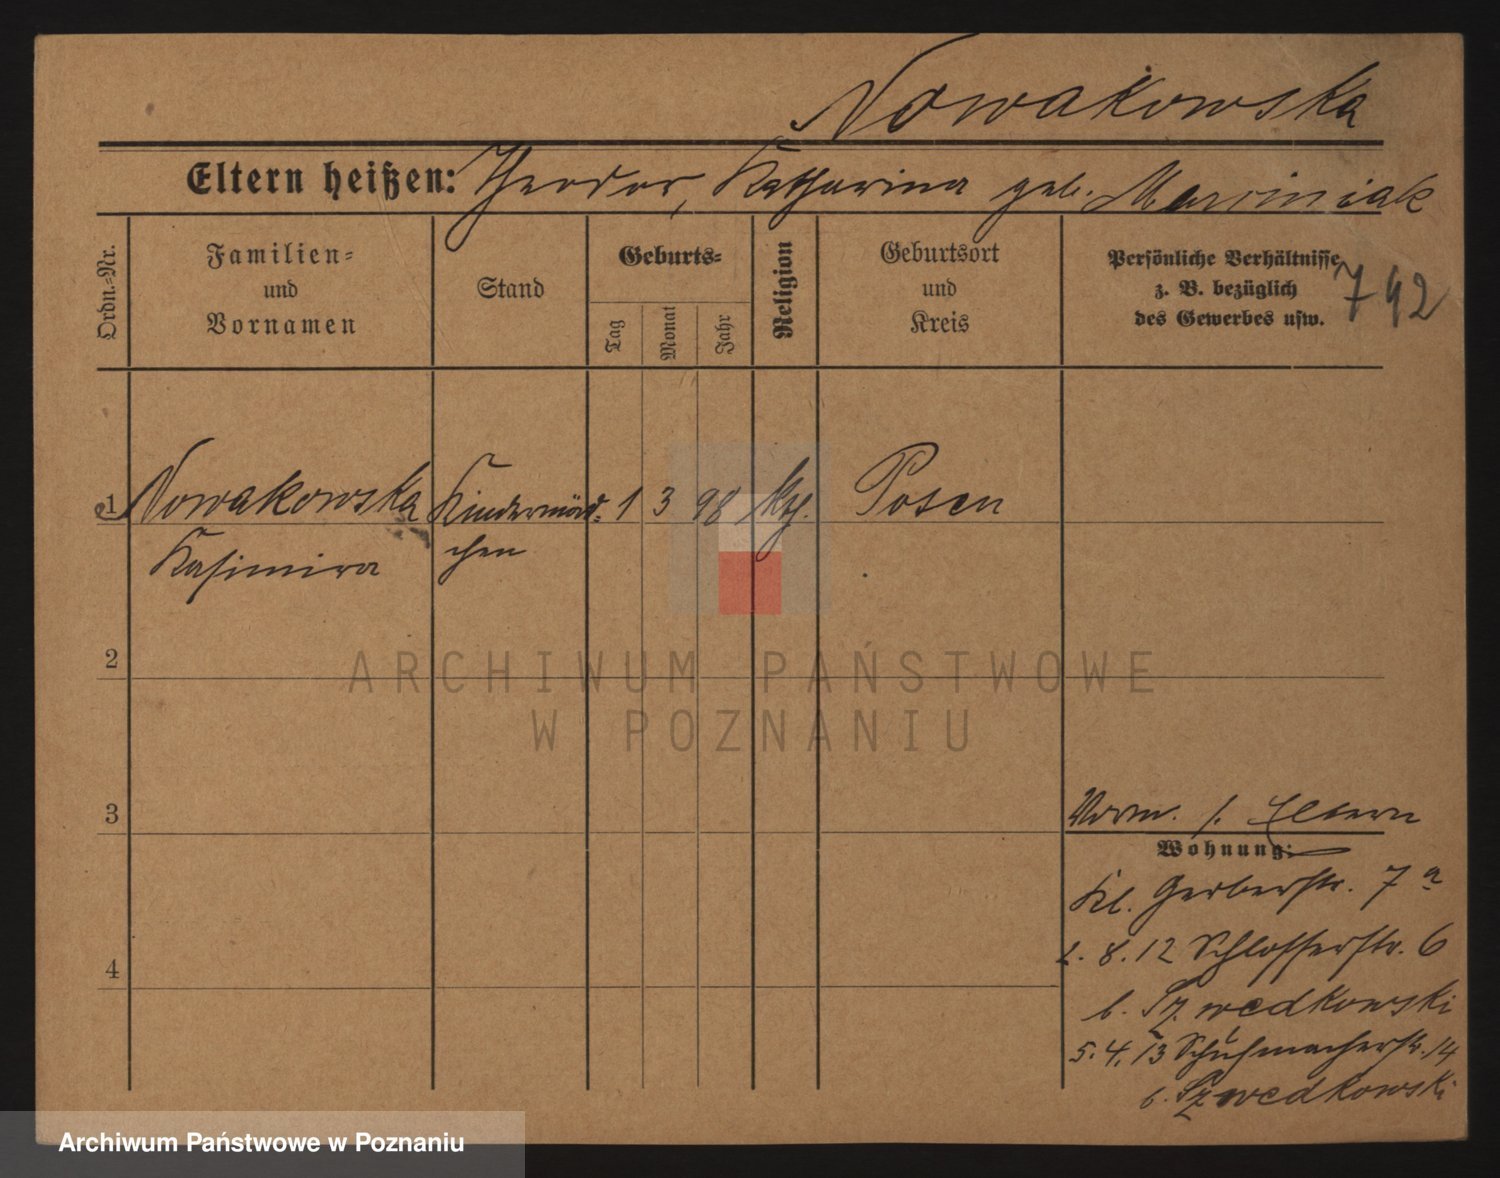 Nowakowska
Eltern heißen: Theodor, Katharina geb. Marciniak
Ordn.-Nr.
Familien-
und
Vornamen
Stand
Geburts-
Tag
Monat
Jahr
Religion
Geburtsort
und
Kreis
Persönliche Verhältnisse
z. B. bezüglich
des Gewerbes usw.
742
1 Nowakowska Kindermäd- 1 3 98 kth. Posen
Kasimira chen
2
ARCHIWUM PAŃSTWOWE
W POZNANIU
3
Vorm. s. Eltern
Wohnung:
Kl. Gerberstr. 7a
2.8.12 Schlosserstr. 6
b. Szwedkowski
4
5.4.13 Schuhmacherstr. 14
b. Szwedkowski
Archiwum Państwowe w Poznaniu